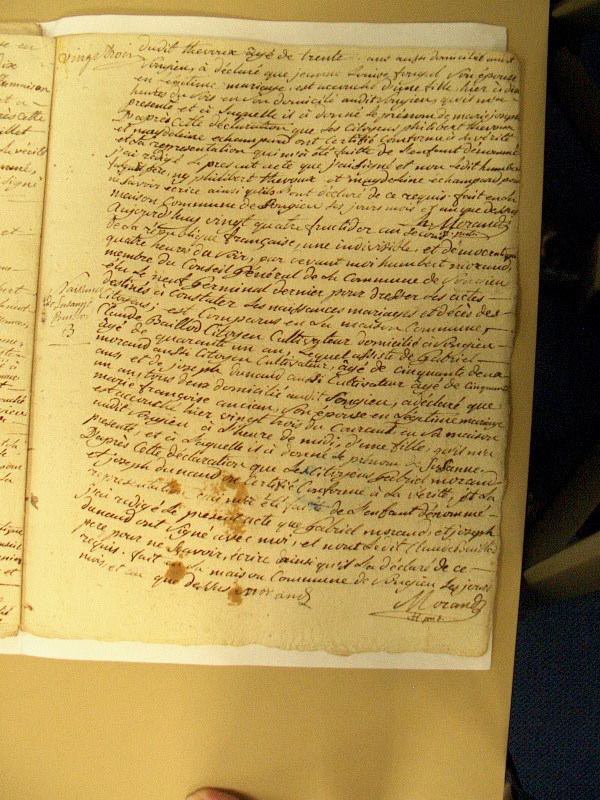 vingt trois
dudit thevoux âgé de trente ans aussi domicilié audit
Songieu, a déclaré que jeanne Louise son épouse
en légitime mariage, est accouchée d'une fille hier à dix
heures du soir en son domicile audit Songieu, qu'il m'a
présenté et à laquelle il a donné le prénom de marie
D'après cette déclaration que les citoyens philibert thevoux
et magdelaine échampard ont certifié conforme à la vérité
et la représentation qui m'a été faite de l'enfant dénommé
j'ai rédigé le présent acte que j'ai signé et non ledit humbert
père, ny philibert thevoux et magdelaine échampard pour
ne savoir écrire ainsi qu'ils l'ont déclaré de ce requis fait en la
maison Commune de Songieu les jours mois et an que dessus
Morand
Aujourd'huy vingt quatre fructidor an second
de la république française, une indivisible et démocratique
quatre heures du soir, par devant moi humbert morand
membre du Conseil Général de la Commune de Songieu
élu le neuf Germinal dernier pour dresser les actes
destinés à Constater les naissances mariages et décès des
Citoyens, est Comparu en la maison Commune
Claude Baillod Citoyen Cultivateur domicilié à Songieu
âgé de quarante un an, lequel assisté de Gabriel
morand aussi Citoyen Cultivateur, âgé de cinquante deux
ans et de joseph dunand aussi Cultivateur âgé de cinquante
un an, tous deux domiciliés audit Songieu, a déclaré que
marie françoise ancian, son épouse en légitime mariage
est accouchée hier vingt trois du Courant en sa maison
audit Songieu à l'heure de midi, d'une fille, qu'il m'a
présenté, et à laquelle il a donné le prénom de Suzanne
D'après cette déclaration que les Citoyens Gabriel morand
et joseph dunand ont certifié Conforme à la vérité, et la
représentation qui m'a été faite de l'enfant dénommé
j'ai rédigé le présent acte que Gabriel morand, et joseph
dunand ont signé avec moi, et non ledit Claude Baillod
père pour ne savoir, écrire ainsi qu'il l'a déclaré de ce
requis. fait en la maison Commune de Songieu les jours
mois, et an que dessus morand
Morand
Naissance
de Suzanne
Baillod
B